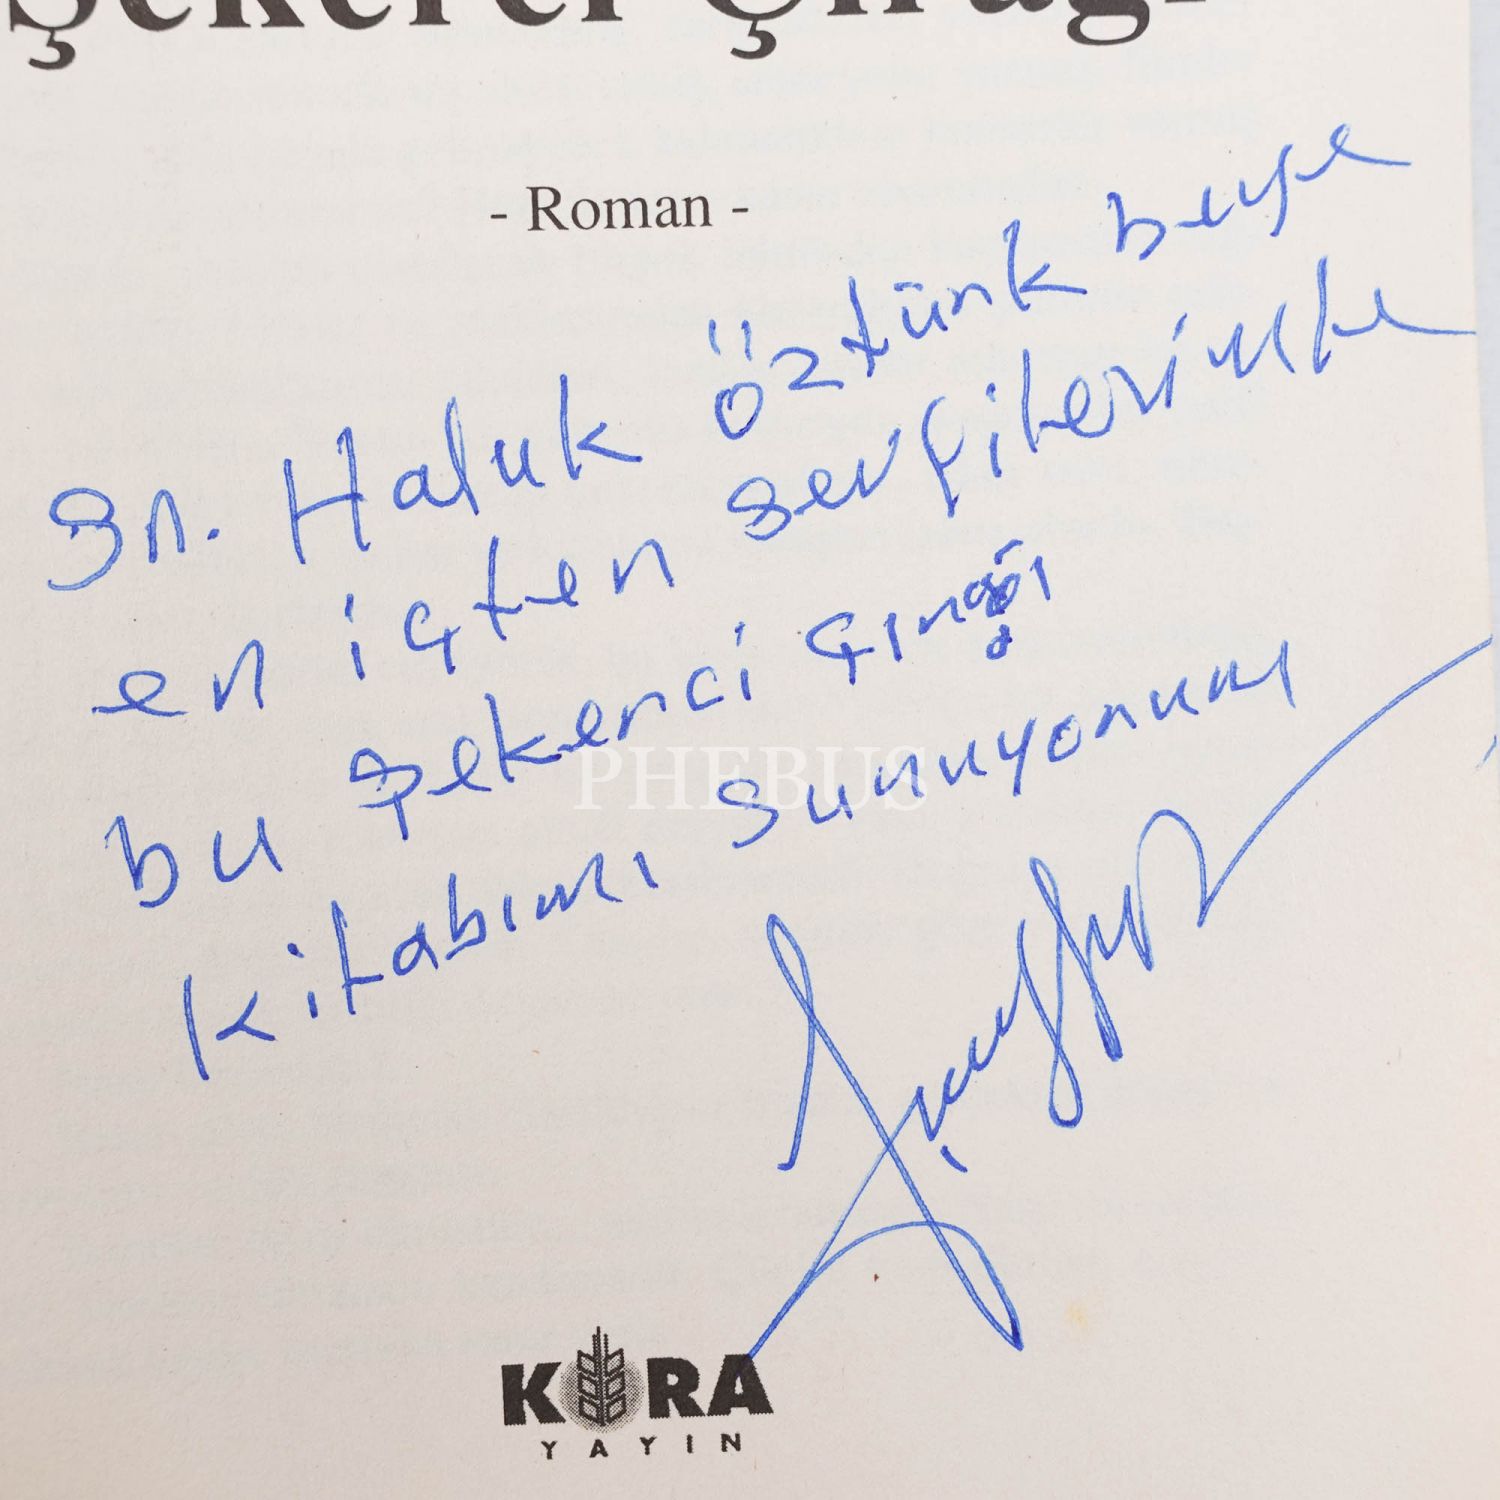 Şekerci Çırağı
- Roman -
Sn. Haluk Öztürk beye
en içten sevgilerimle
bu Şekerci Çırağı
kitabımı sunuyorum
PHEBUS
KORA
YAYIN